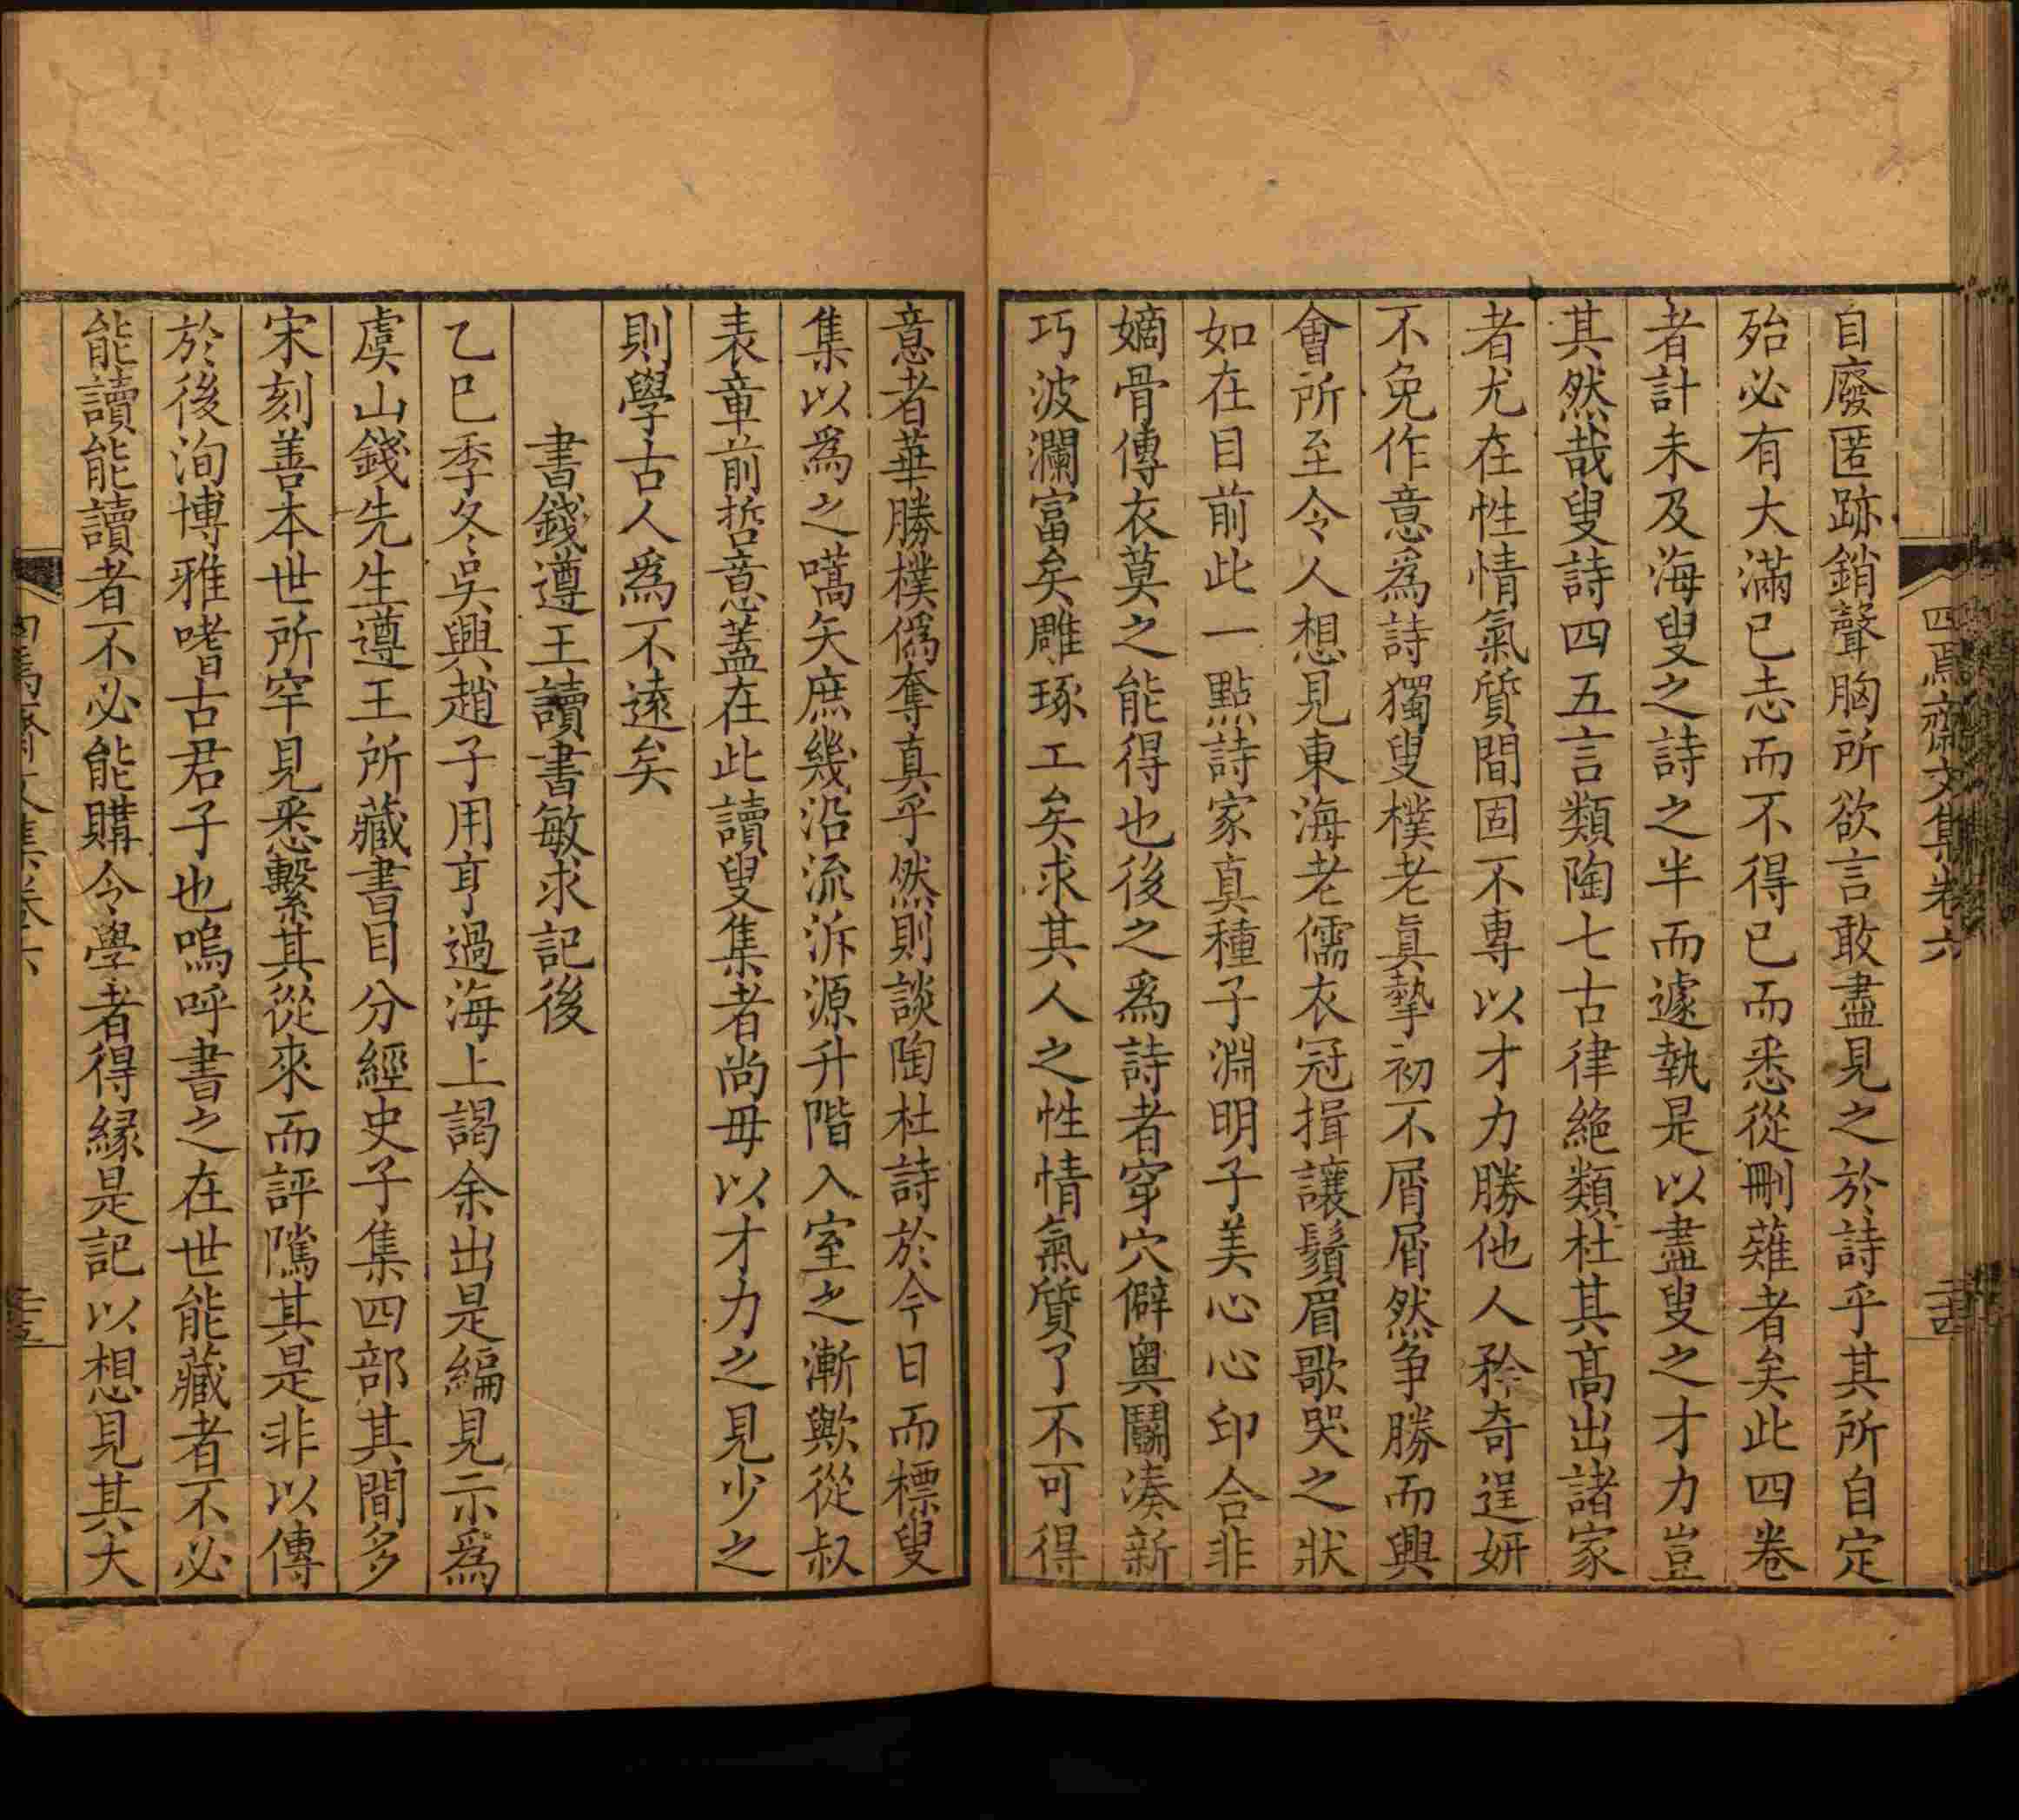 四焉齋文集卷六
二十四
自廢匿跡銷聲胸所欲言敢盡見之於詩乎其所自定
殆必有大滿已志而不得已而悉從刪薙者矣此四卷
者計未及海叟之詩之半而遽執是以盡叟之才力豈
其然哉叟詩四五言類陶七古律絶類杜其高出諸家
者尤在性情氣質間固不專以才力勝他人矜奇逞妍
不免作意為詩獨叟樸老眞摯初不屑屑然争勝而興
會所至令人想見東海老儒衣冠揖讓鬚眉歌哭之狀
如在目前此一點詩家真種子淵明子美心心印合非
嫡骨傳衣莫之能得也後之爲詩者穿穴僻奥鬭湊新
巧波瀾富矣雕琢工矣求其人之性情氣質了不可得
意者華勝樸僞奪真乎然則談陶杜詩於今日而標叟
集以爲之嚆矢庶幾沿流泝源升階入室之漸歟從叔
表章前哲意蓋在此讀叟集者尚毋以才力之見少之
則學古人爲不遠矣
書錢遵王讀書敏求記後
乙巳季冬吳興趙子用亨過海上謁余出是編見示爲
虞山錢先生遵王所藏書目分經史子集四部其間多
宋刻善本世所罕見悉繫其從來而評隲其是非以傳
於後洵博雅嗜古君子也嗚呼書之在世能藏者不必
能讀能讀者不必能購令學者得縁是記以想見其大
四焉齋文集卷六
二十五